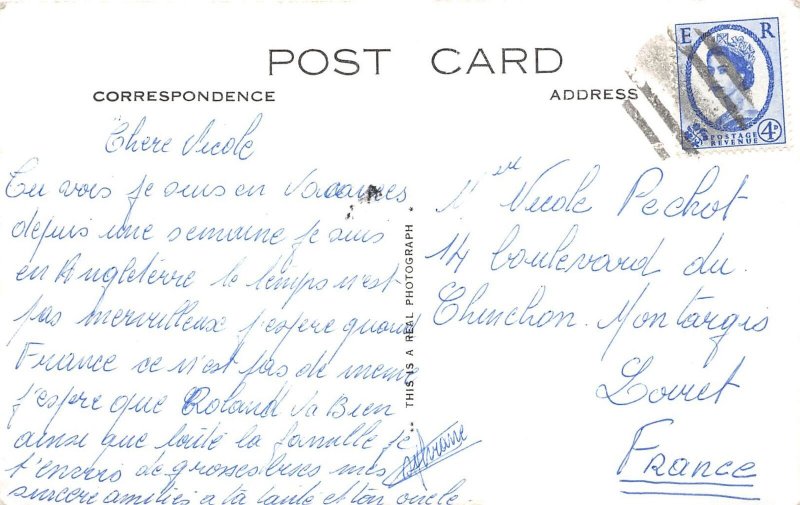 POST CARD
CORRESPONDENCE
ADDRESS
E R
POSTAGE
REVENUE
4D
Chere Nicole
Tu vois je suis en vacances
depuis une semaine je suis
en Angleterre le temps n'est
pas merveilleux j'espere quan
France ce n'est pas de meme
j'espere que Roland va Bien
ainsi que toute la famille je
t'envois de grosses bises mes
sincere amitiés a ta tante et ton oncle.
THIS IS A REAL PHOTOGRAPH
Nicole Pechot
14 boulevard du
Chinchon. Montargis
Loiret
France